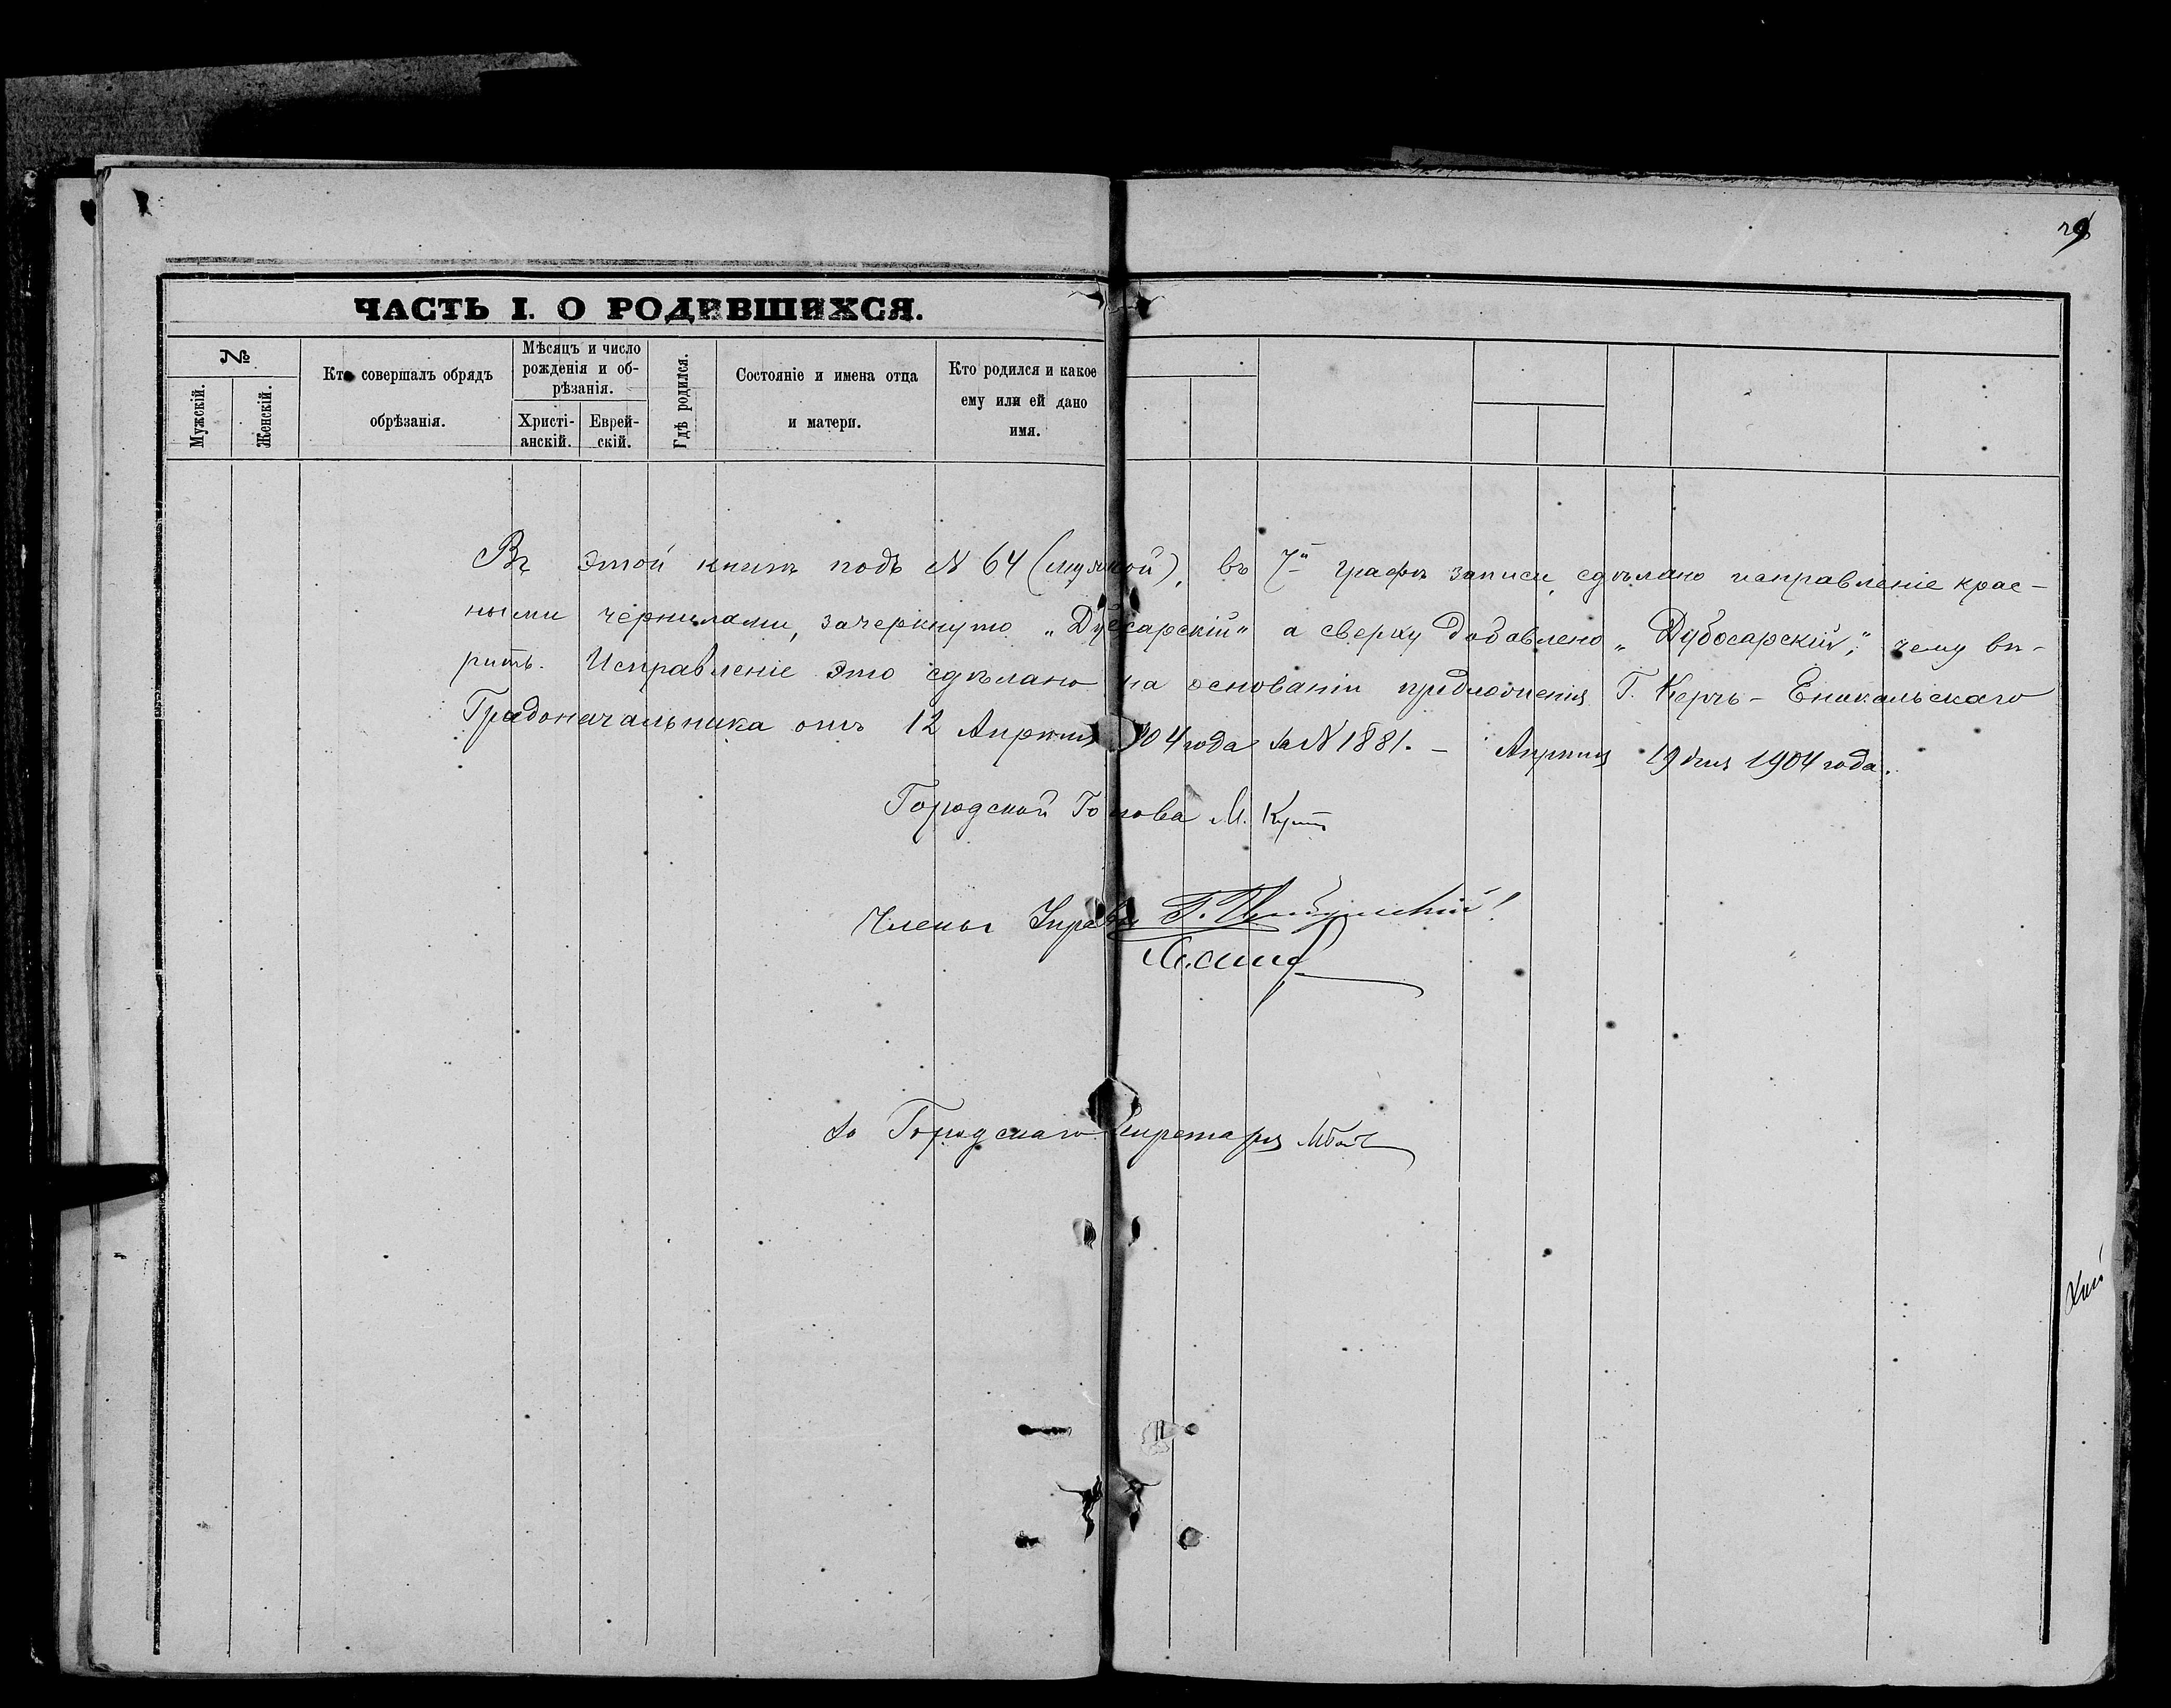 ЧАСТЬ I. О РОДИВШИХСЯ.
№
Мужскій.
Женскій.
Кто совершалъ обрядъ
обрѣзанія.
Мѣсяцъ и число
рожденія и об-
рѣзанія.
Христі-
анскій.
Еврей-
скій.
Гдѣ родился.
Состояніе и имена отца
и матери.
Кто родился и какое
ему или ей дано
имя.
Въ этой книгѣ подъ № 64 (мужской), въ 7й графѣ записи, сдѣлано исправленіе крас-
ными чернилами, зачеркнуто „Дуксарскій" а сверху добавлено „Дубосарскій", чему вѣ-
рить. Исправленіе это сдѣлано на основаніи предложенія Г. Керчь-Еникальскаго
Градоначальника отъ 12 Апрѣля 904 года за № 1881. – Апрѣля 19 дня 1904 года.
Городской Голова М.
Члены Управы Г.
За Городскаго Секретаря